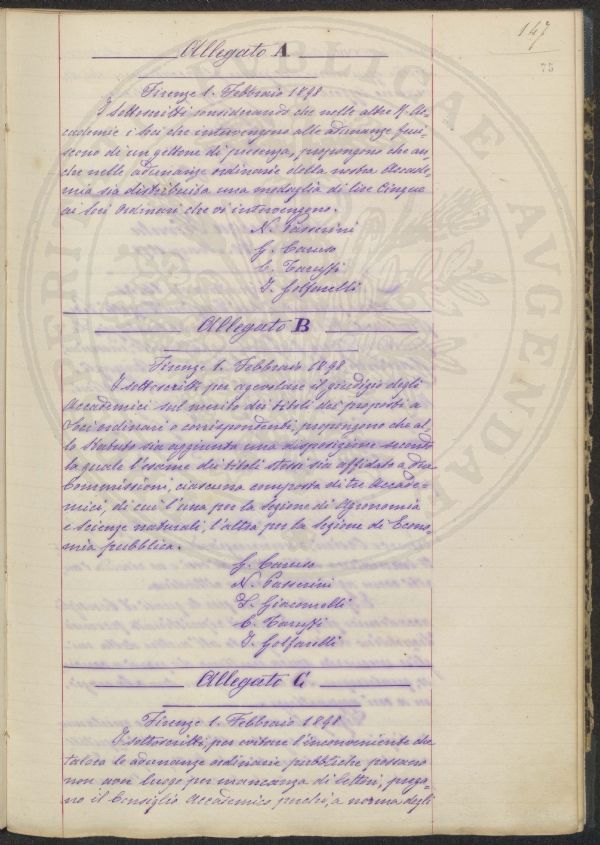 147
75
Allegato A
Firenze 1. Febbraio 1898
I sottoscritti considerando che nelle altre R. Ac=
cademie i Soci che intervengono alle adunanze frui=
scono di un gettone di presenza, propongono che an=
che nelle adunanze ordinarie della nostra Accade=
mia sia distribuita una medaglia di lire Cinque
ai Soci Ordinari che vi intervengono.
N. Passerini
G. Caruso
C. Taruffi
I. Golfarelli
Allegato B
Firenze 1. Febbraio 1898
I sottoscritti per agevolare il giudizio degli
Accademici sul merito dei titoli dei proposti a
Soci ordinari o corrispondenti, propongono che al=
lo Statuto sia aggiunta una disposizione secondo
la quale l'esame dei titoli stessi sia affidato a due
Commissioni, ciascuna composta di tre Accade=
mici, di cui l'una per la Sezione di Agronomia
e Scienze naturali, l'altra per la Sezione di Econo=
mia pubblica.
G. Caruso
N. Passerini
L. Giacomelli
C. Taruffi
I. Golfarelli
Allegato C
Firenze 1. Febbraio 1898
I sottoscritti, per evitare l'inconveniente che
talora le adunanze ordinarie pubbliche possano
non aver luogo per mancanza di lettori, prega=
no il Consiglio Accademico perchè, a norma degli